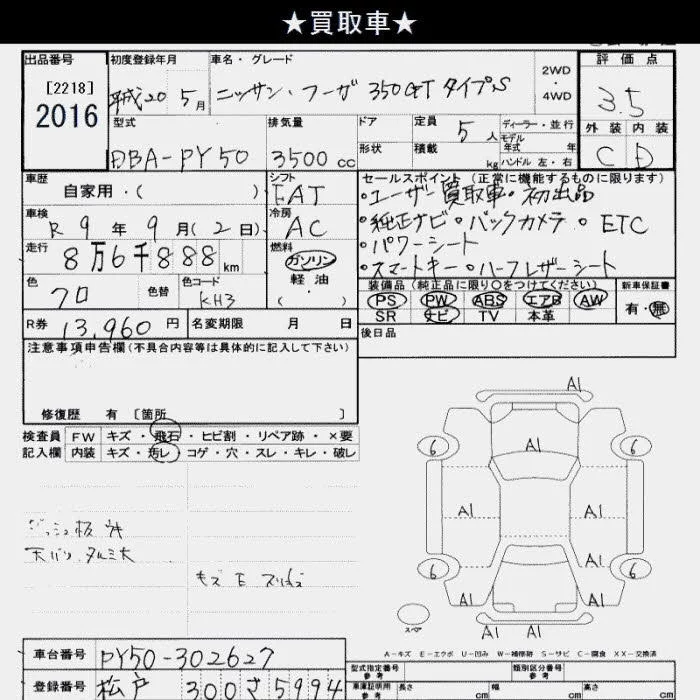 ★買取車★
出品番号 初度登録年月 車名・グレード 2WD・4WD 評価点
[2218]
2016
平成20 5月 ニッサン・フーガ 350GT タイプS 3.5
型式 排気量 ドア 定員 5人 ディーラー・並行
モデル年式 年 外装 内装
DBA-PY50 3500cc 形状 積載 kg ハンドル 左・右 C D
車歴 シフト セールスポイント(正常に機能するものに限ります)
自家用・( ) FAT ・ユーザー買取車・初出品
車検 冷房 ・純正ナビ・バックカメラ・ETC
R 9年 9月(2日) AC ・パワーシート
走行 燃料 ・スマートキー・ハーフレザーシート
8万6千888km ガソリン
軽油
( )
色 色替 色コード 装備品(純正品に限り○をつけてください) 新車保証書
クロ KH3 PS PW ABS エアB AW 有・無
SR ナビ TV 本革
R券 13,960円 名変期限 月 日 後日品
注意事項申告欄(不具合内容等は具体的に記入して下さい)
修復歴 有 [箇所 ]
検査員 FW キズ・飛石・ヒビ割・リペア跡・×要
記入欄 内装 キズ・汚レ・コゲ・穴・スレ・キレ・破レ
A1
6 A1 6
A1 A1
A1
6 6
A1 A1
スペア A1 A1
A-キズ E-エクボ U-凹み W-補修跡 S-サビ C-腐食 XX-交換済
車台番号 PY50-302627 型式指定番号 参考 類別区分番号 参考
登録番号 松戸 300 さ 5994 車庫証明用 参考 長さ cm 幅 cm 高さ cm